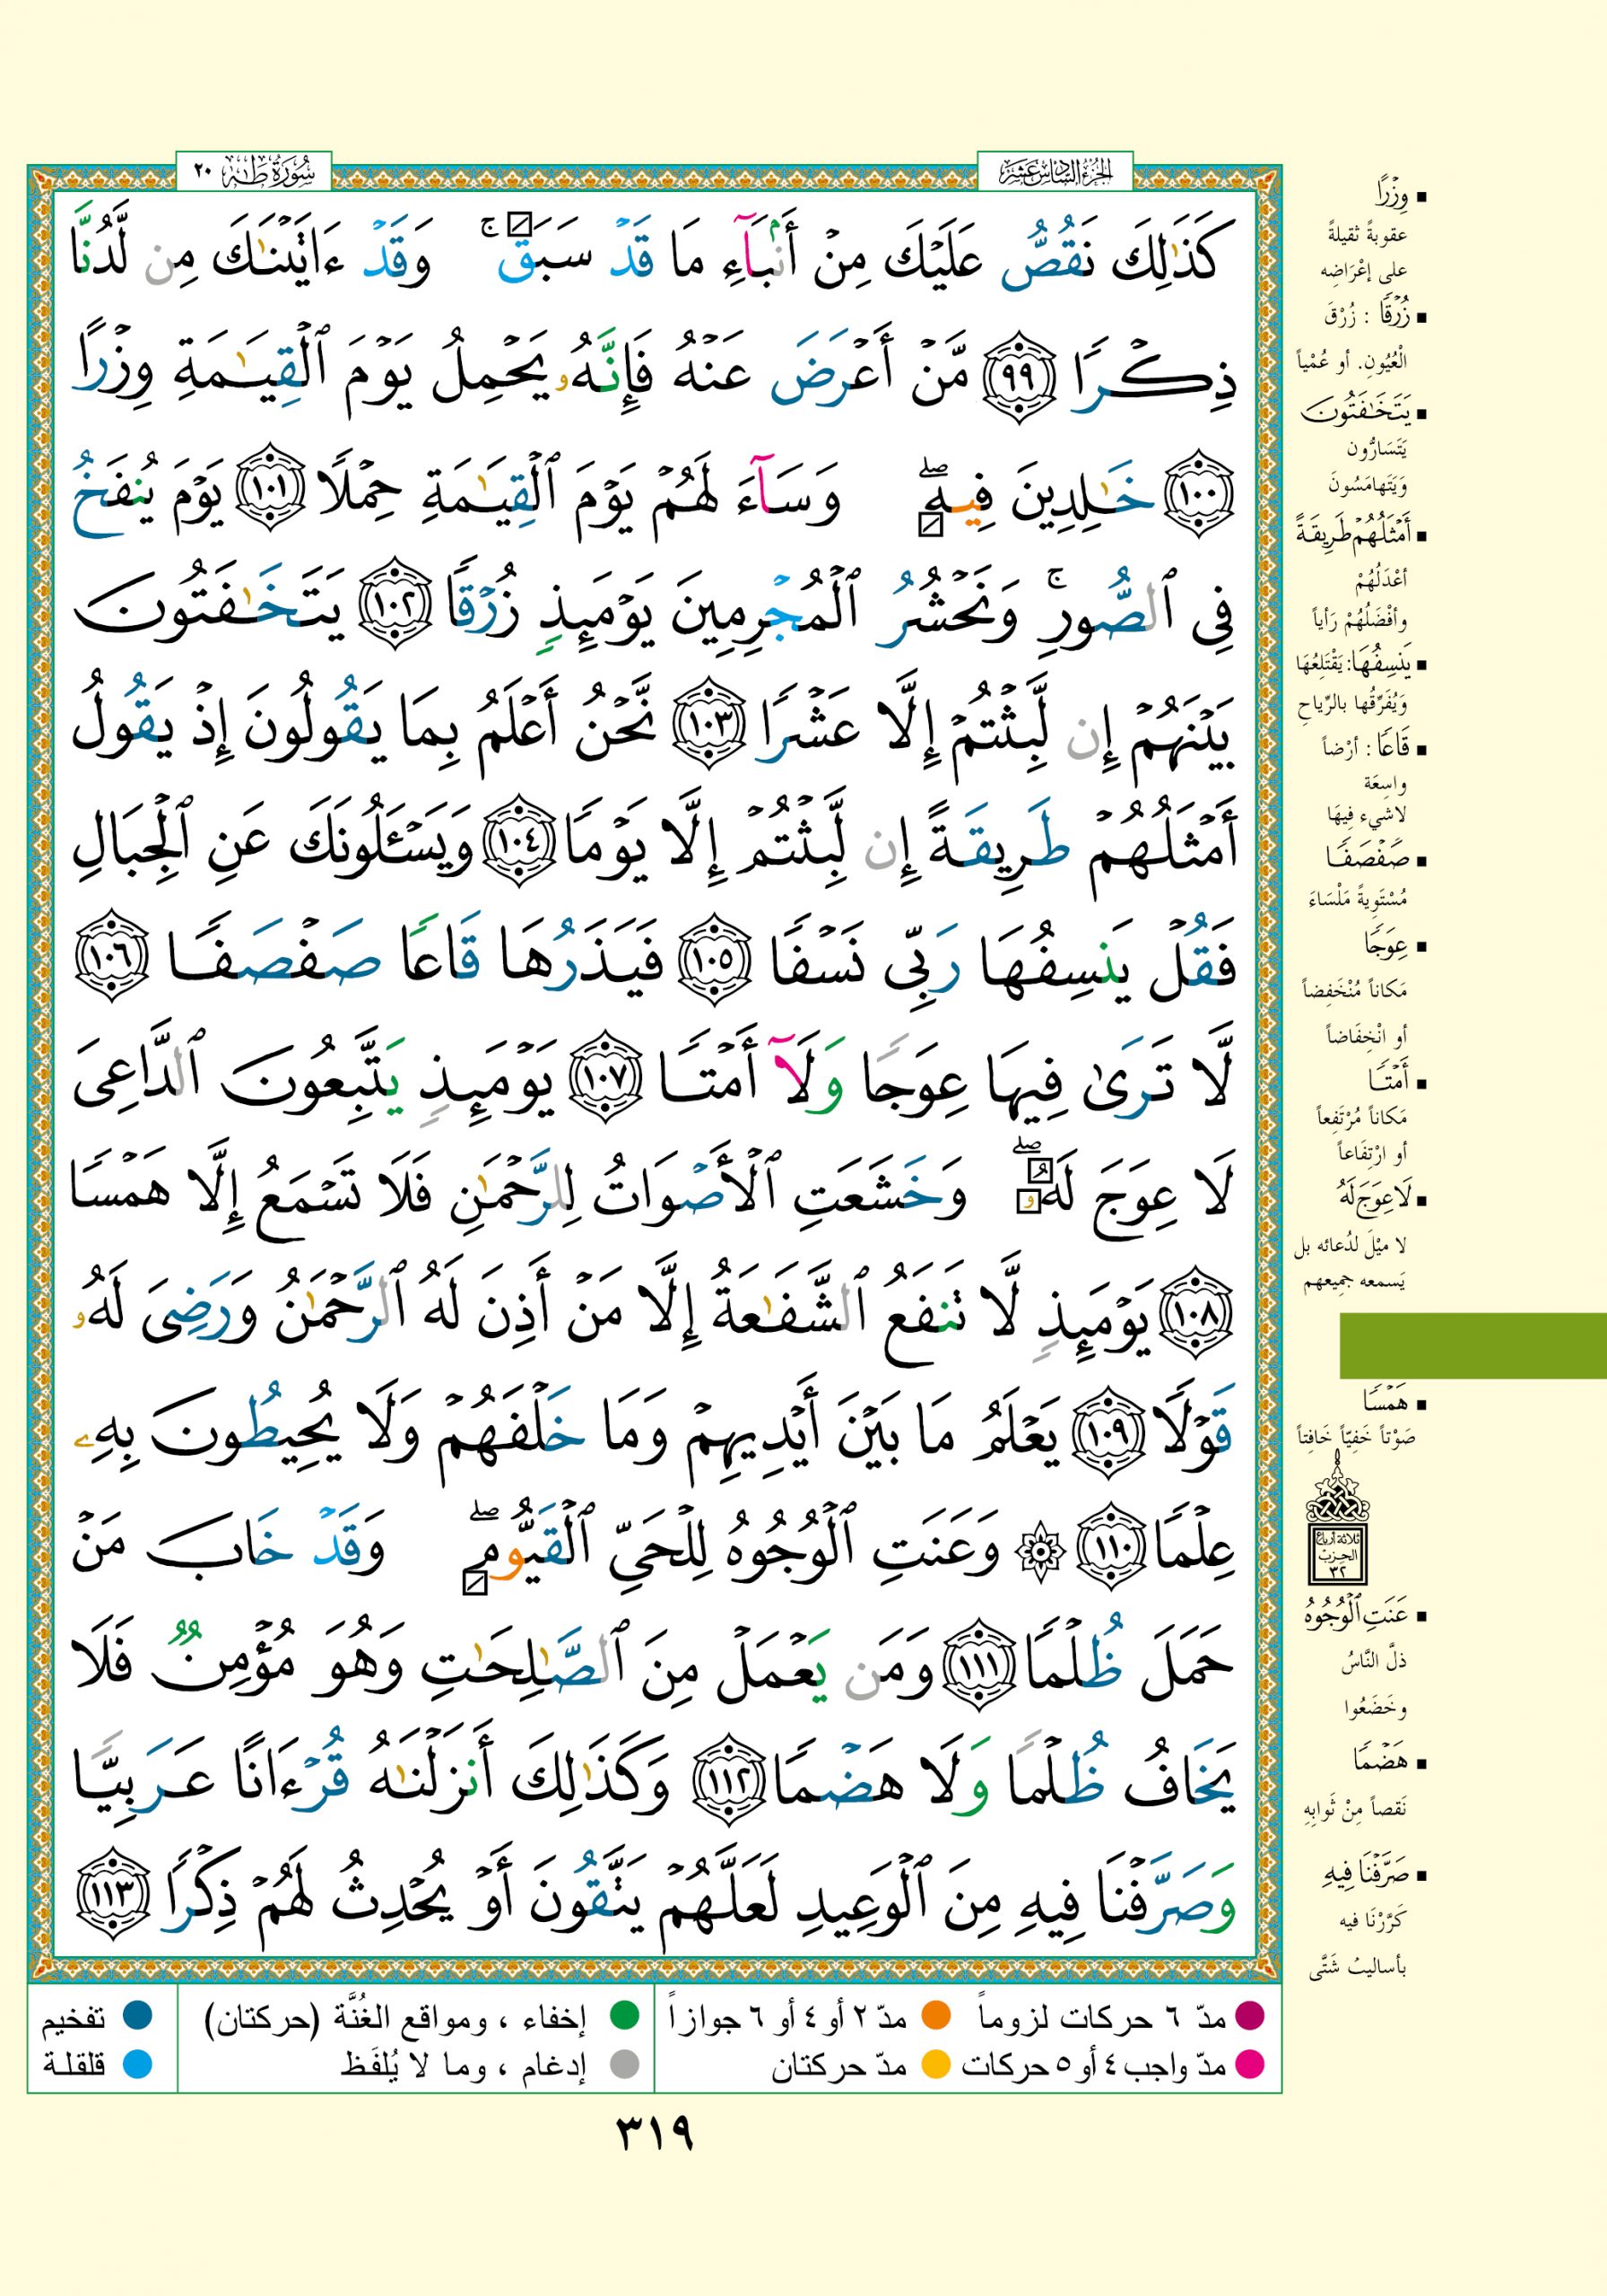 الجزء السادس عشر
سورة طه ٢٠
كَذَٰلِكَ نَقُصُّ عَلَيْكَ مِنْ أَنۢبَآءِ مَا قَدْ سَبَقَ ۚ وَقَدْ ءَاتَيْنَٰكَ مِن لَّدُنَّا
ذِكْرًا ٩٩ مَّنْ أَعْرَضَ عَنْهُ فَإِنَّهُۥ يَحْمِلُ يَوْمَ ٱلْقِيَٰمَةِ وِزْرًا
١٠٠ خَٰلِدِينَ فِيهِ ۖ وَسَآءَ لَهُمْ يَوْمَ ٱلْقِيَٰمَةِ حِمْلًا ١٠١ يَوْمَ يُنفَخُ
فِى ٱلصُّورِ ۚ وَنَحْشُرُ ٱلْمُجْرِمِينَ يَوْمَئِذٍ زُرْقًا ١٠٢ يَتَخَٰفَتُونَ
بَيْنَهُمْ إِن لَّبِثْتُمْ إِلَّا عَشْرًا ١٠٣ نَّحْنُ أَعْلَمُ بِمَا يَقُولُونَ إِذْ يَقُولُ
أَمْثَلُهُمْ طَرِيقَةً إِن لَّبِثْتُمْ إِلَّا يَوْمًا ١٠٤ وَيَسْـَٔلُونَكَ عَنِ ٱلْجِبَالِ
فَقُلْ يَنسِفُهَا رَبِّى نَسْفًا ١٠٥ فَيَذَرُهَا قَاعًا صَفْصَفًا ١٠٦
لَّا تَرَىٰ فِيهَا عِوَجًا وَلَآ أَمْتًا ١٠٧ يَوْمَئِذٍ يَتَّبِعُونَ ٱلدَّاعِىَ
لَا عِوَجَ لَهُۥ ۖ وَخَشَعَتِ ٱلْأَصْوَاتُ لِلرَّحْمَٰنِ فَلَا تَسْمَعُ إِلَّا هَمْسًا
١٠٨ يَوْمَئِذٍ لَّا تَنفَعُ ٱلشَّفَٰعَةُ إِلَّا مَنْ أَذِنَ لَهُ ٱلرَّحْمَٰنُ وَرَضِىَ لَهُۥ
قَوْلًا ١٠٩ يَعْلَمُ مَا بَيْنَ أَيْدِيهِمْ وَمَا خَلْفَهُمْ وَلَا يُحِيطُونَ بِهِۦ
عِلْمًا ١١٠ ۞ وَعَنَتِ ٱلْوُجُوهُ لِلْحَىِّ ٱلْقَيُّومِ ۖ وَقَدْ خَابَ مَنْ
حَمَلَ ظُلْمًا ١١١ وَمَن يَعْمَلْ مِنَ ٱلصَّٰلِحَٰتِ وَهُوَ مُؤْمِنٌ فَلَا
يَخَافُ ظُلْمًا وَلَا هَضْمًا ١١٢ وَكَذَٰلِكَ أَنزَلْنَٰهُ قُرْءَانًا عَرَبِيًّا
وَصَرَّفْنَا فِيهِ مِنَ ٱلْوَعِيدِ لَعَلَّهُمْ يَتَّقُونَ أَوْ يُحْدِثُ لَهُمْ ذِكْرًا ١١٣
▪ وِزْرًا
عقوبةً ثقيلةً
على إعْرَاضِه
▪ زُرْقًا : زُرْقَ
الْعُيُونِ. أو عُمْياً
▪ يَتَخَٰفَتُونَ
يَتَسَارُّون
وَيَتَهامَسُونَ
▪ أَمْثَلُهُمْ طَرِيقَةً
أعْدَلُهُمْ
وأفْضَلُهُمْ رَأياً
▪ يَنسِفُهَا : يَقْتَلِعُهَا
وَيُفَرِّقُها بالرِّياحِ
▪ قَاعًا : أرْضاً
واسِعَة
لاشيء فِيهَا
▪ صَفْصَفًا
مُسْتَوِيةً مَلْسَاءَ
▪ عِوَجًا
مَكاناً مُنْخَفِضاً
أو انْخِفَاضاً
▪ أَمْتًا
مَكاناً مُرْتَفِعاً
أو ارْتِفَاعاً
▪ لَا عِوَجَ لَهُ
لا ميْلَ لدُعائه بل
يَسمعه جمِيعهم
▪ هَمْسًا
صَوْتاً خَفِيّاً خَافِتاً
ثلاثة أرباع
الحزب
٣٢
▪ عَنَتِ ٱلْوُجُوهُ
ذلَّ النَّاسُ
وخَضَعُوا
▪ هَضْمًا
نَقصاً مِنْ ثَوابِهِ
▪ صَرَّفْنَا فِيهِ
كَرَّرْنَا فيه
بأساليبَ شَتَّى
مدّ ٦ حركات لزوماً مدّ ٢ أو ٤ أو ٦ جوازاً إخفاء ، ومواقع الغُنَّة (حركتان) تفخيم
مدّ واجب ٤ أو ٥ حركات مدّ حركتان إدغام ، وما لا يُلفَظ قلقلة
٣١٩